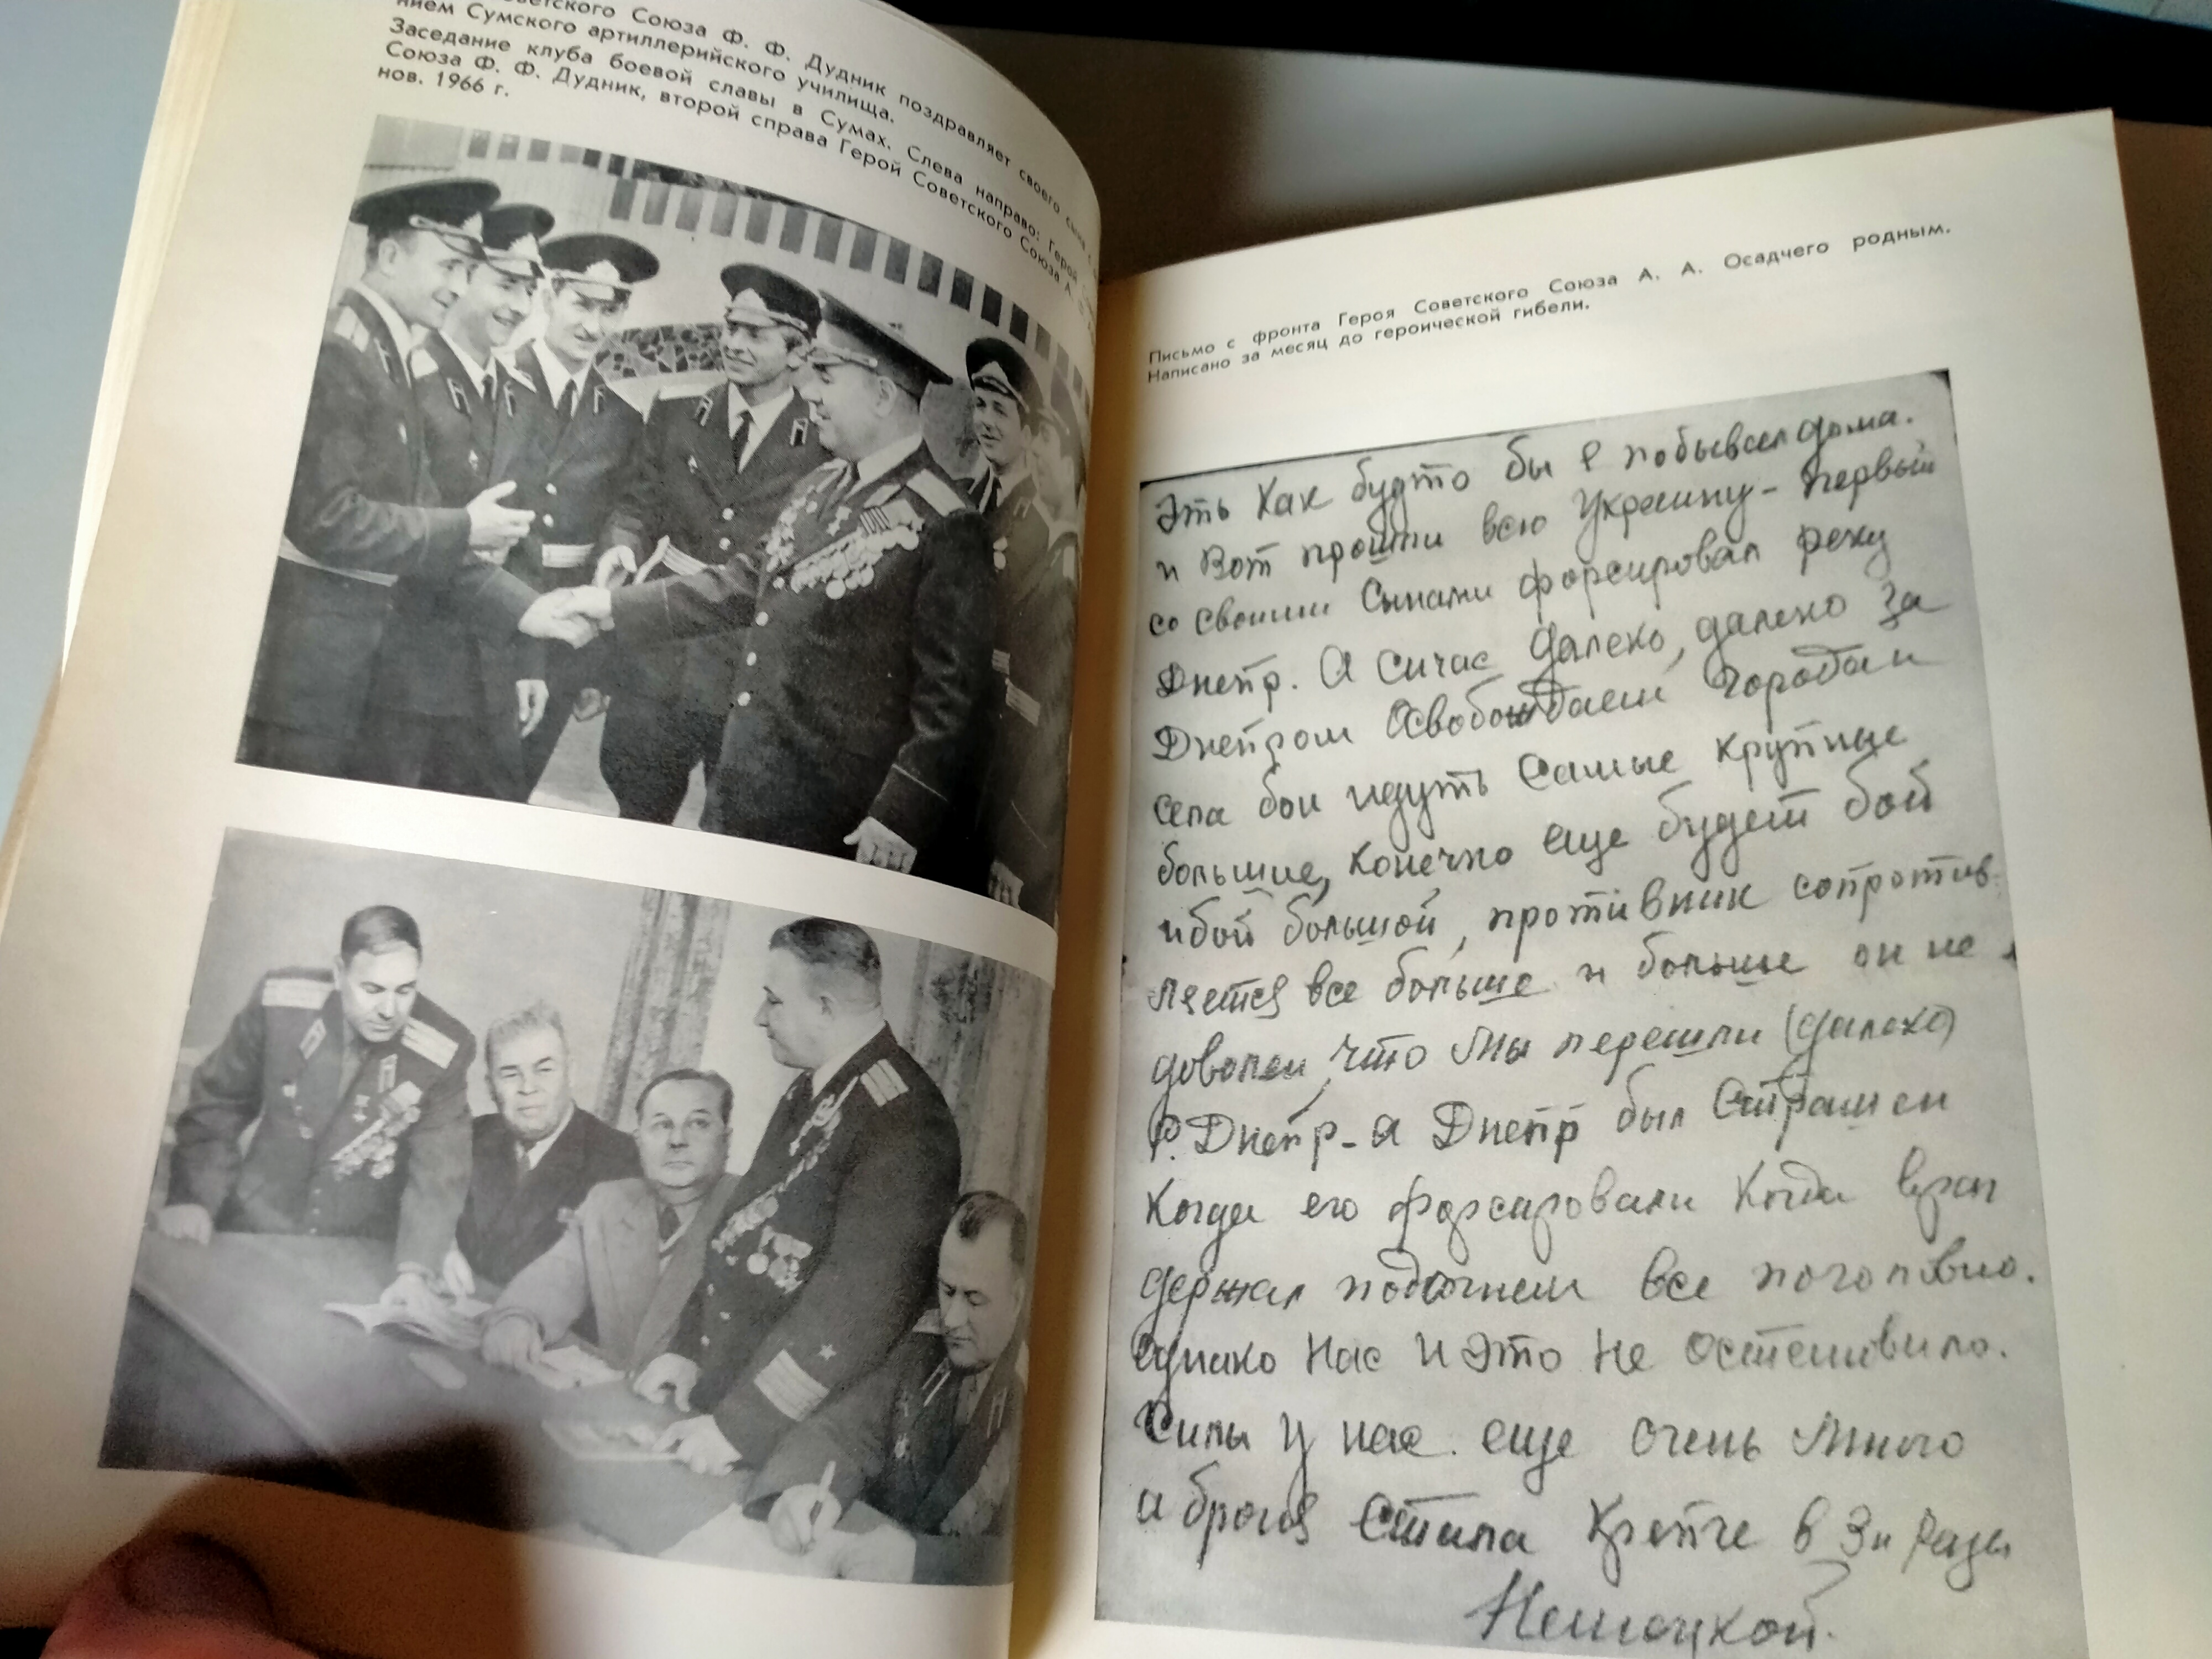 Советского Союза Ф. Ф. Дудник поздравляет своего сына с
нием Сумского артиллерийского училища.
Заседание клуба боевой славы в Сумах. Слева направо: Герой
Союза Ф. Ф. Дудник, второй справа Герой Советского Союза А.
нов. 1966 г.
Письмо с фронта Героя Советского Союза А. А. Осадчего родным.
Написано за месяц до героической гибели.
Эть как будто бы я побывал дома.
и Вот прошли всю Украину - первый
со своими Сынами форсировал реку
Днепр. А сичас Далеко, далеко за
Днепром Освобождаем города и
села бои идуть Самые крупные
большие, конечно еще будет бой
и бой большой, противник сопротив
ляется все больше и больше он не
доволен, что Мы перешли (далеко)
р. Днепр - а Днепр был Страшен
Когда его форсировали Когда враг
держал под Огнем все поголовно.
однако нас и это не остановило.
Силы у нас еще очень Много
и броня Стала Крепче в 3и раза
Немецкой.